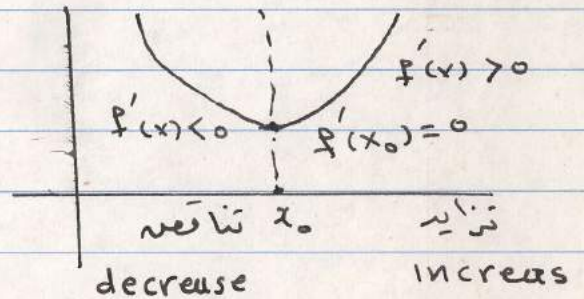 f'(x) > 0
f'(x) < 0 f'(x₀) = 0
تناقص x₀ تزايد
decrease increas